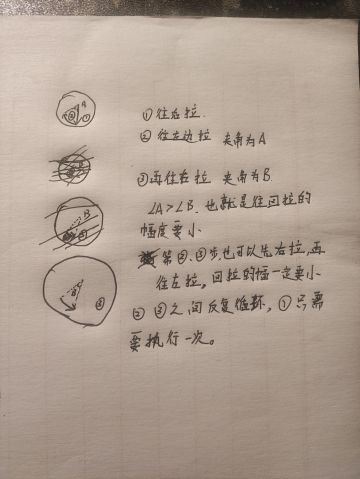 A
②
①
①往后拉
②往左边拉 夹角为A
③再往右拉 夹角为B
B
∠A>∠B.也就是往回拉的
幅度要小
第②、③步也可以先右拉,再
往左拉。回拉的幅一定要小
B
③
② ③之间反复循环,①只需
要执行一次。